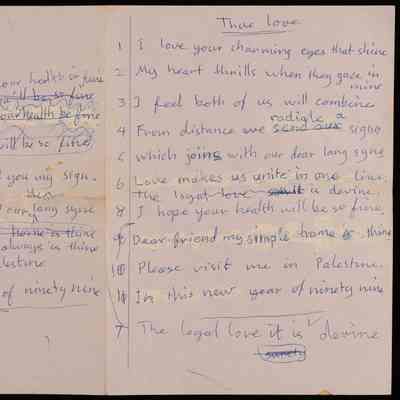 our health is fine
will be so fine
our health be fine
will be so fine
t you my sign.
our lang syne
home is thine
always is thine
lestine
of ninety nine
True love
1 I love your charming eyes that shine
2 My heart thrills when they gaze in
mine
3 I feel both of us will combine
radiate a
4 From distance we send our signe
5 which joins with our dear lang syne
6 Love makes us unite in one line.
The loyal love is devine.
8 I hope your health will be so fine
9 Dear friend my simple home is thine
10 Please visit me in Palestine.
11 In this new year of ninety nine
7 The legal love it is devine